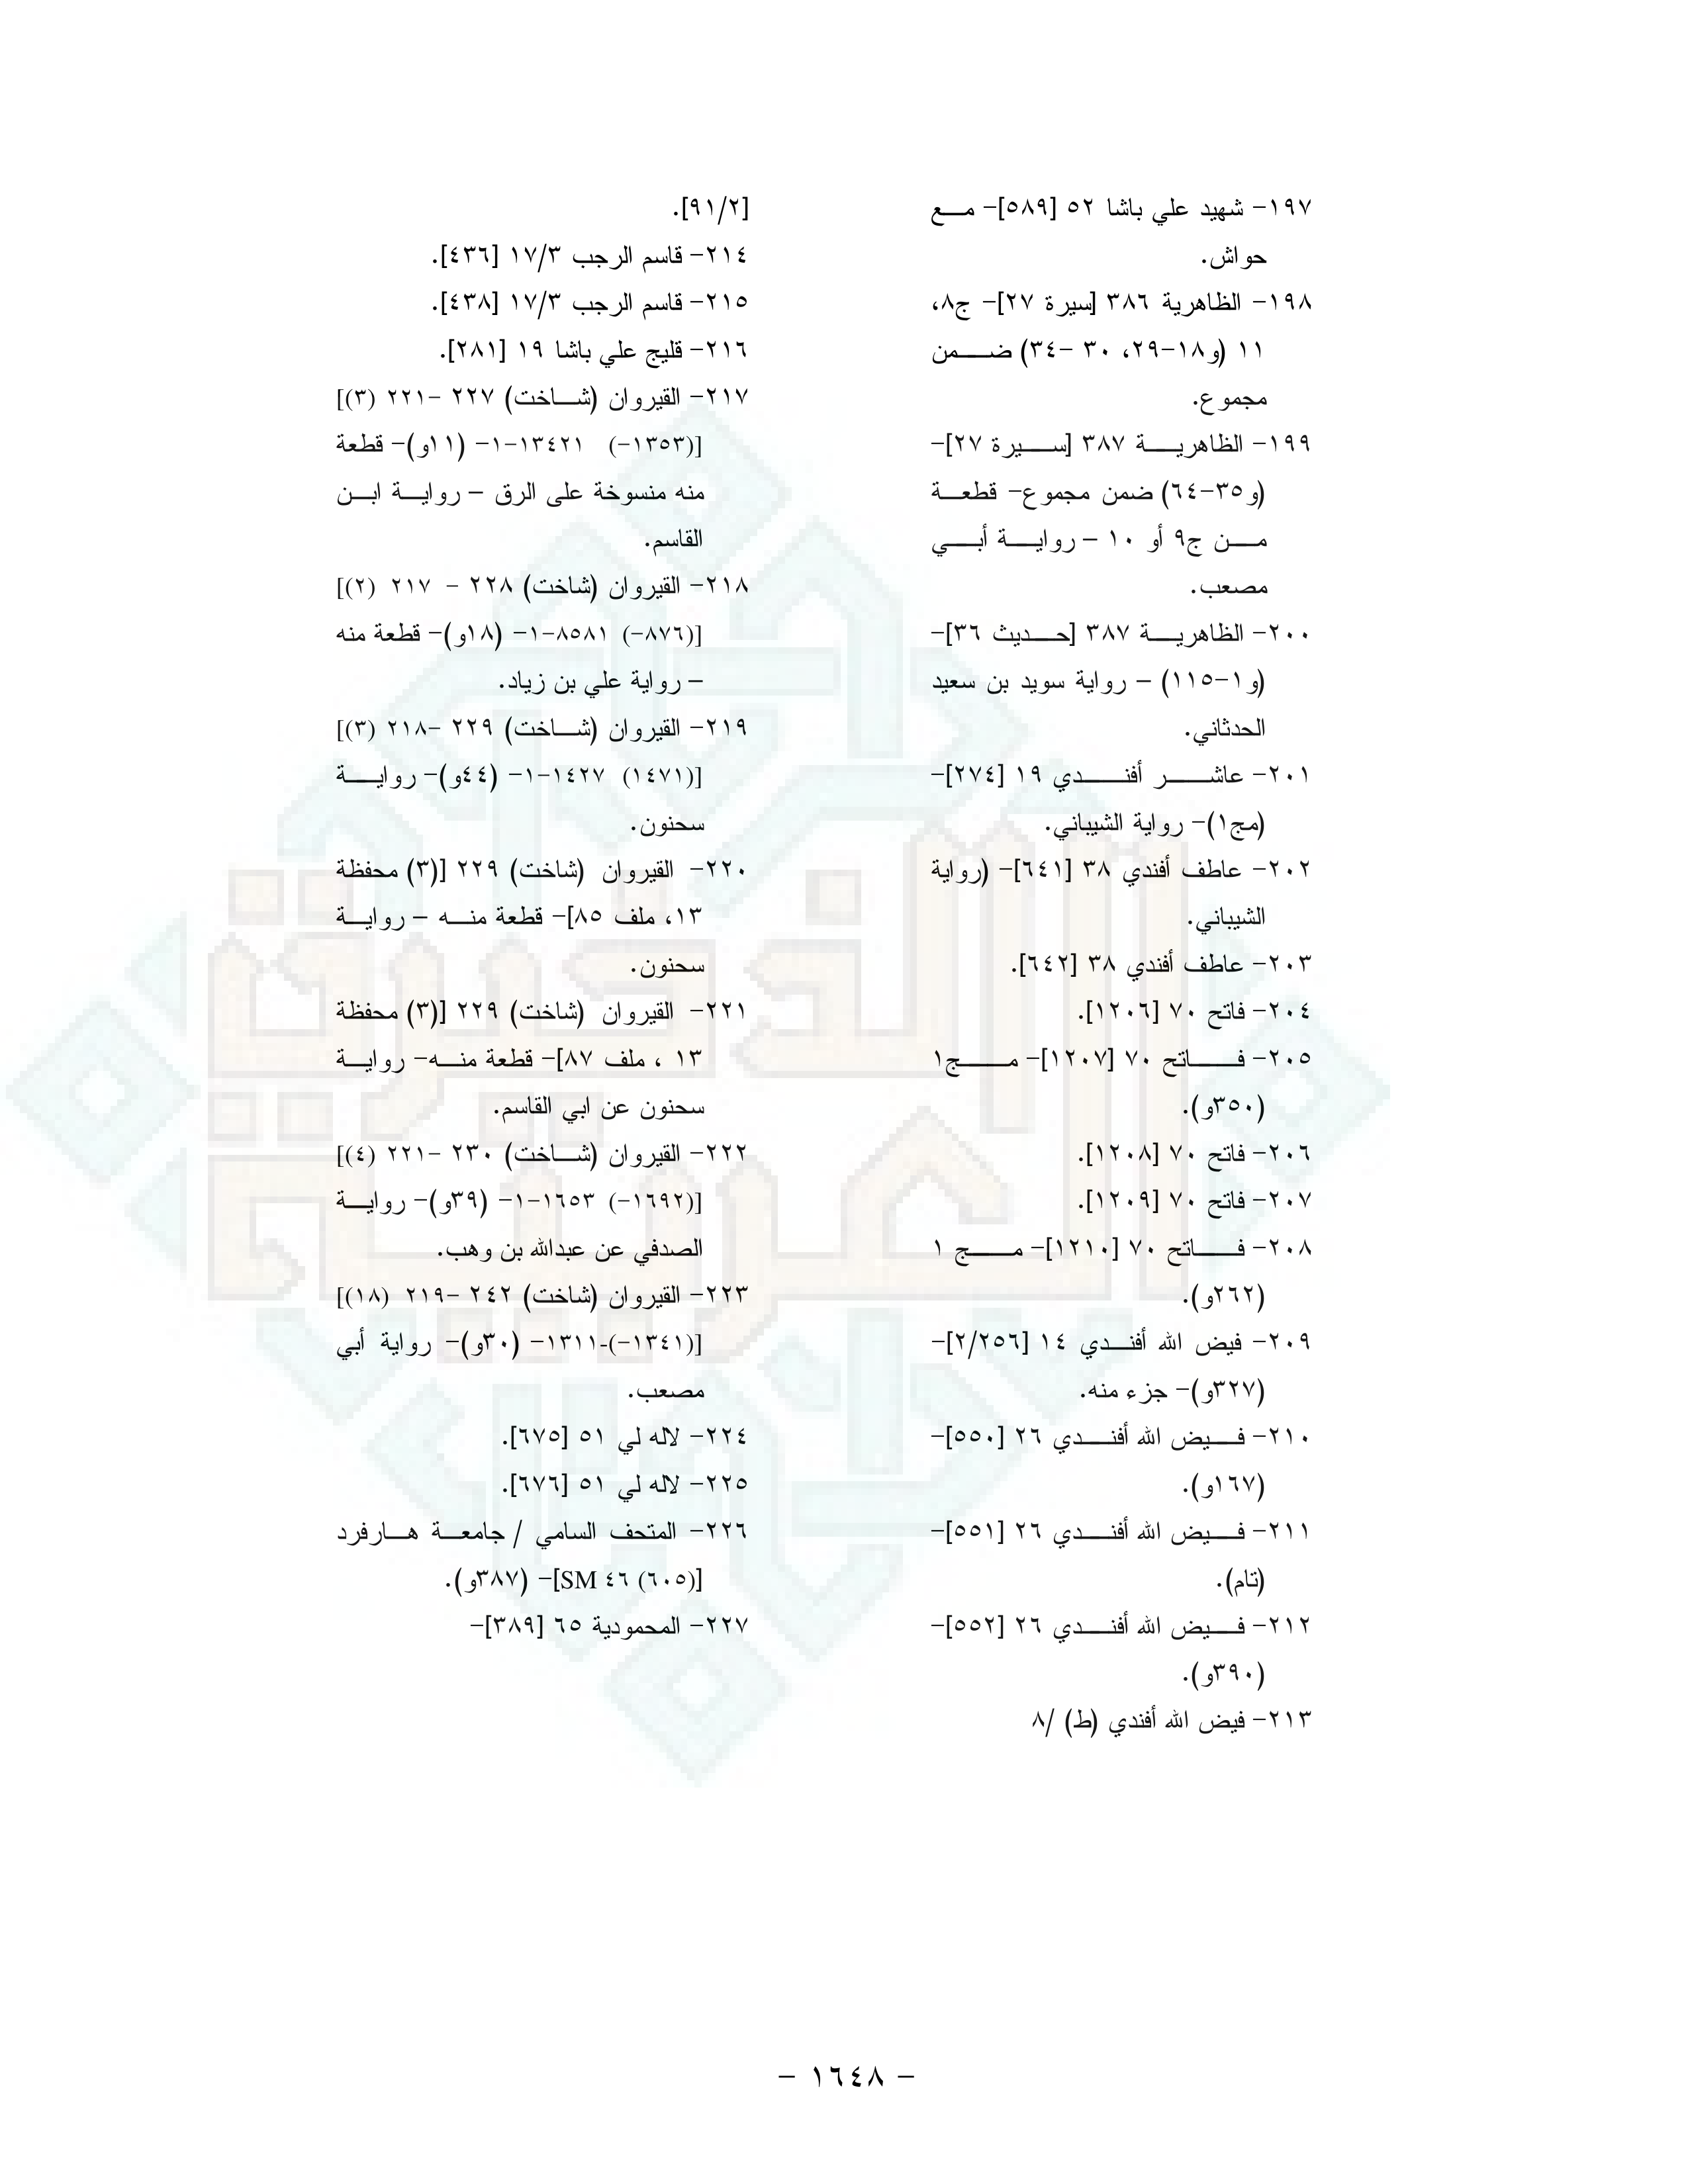 ١٩٧- شهيد علي باشا ٥٢ [٥٨٩]- مع
حواش.
١٩٨- الظاهرية ٣٨٦ [سيرة ٢٧]- ج٨،
١١ (و١٨-٢٩، ٣٠ -٣٤) ضمن
مجموع.
١٩٩- الظاهرية ٣٨٧ [سيرة ٢٧]-
(و٣٥-٦٤) ضمن مجموع- قطعة
من ج٩ أو ١٠ – رواية أبي
مصعب.
٢٠٠- الظاهرية ٣٨٧ [حديث ٣٦]-
(و١-١١٥) – رواية سويد بن سعيد
الحدثاني.
٢٠١- عاشر أفندي ١٩ [٢٧٤]-
(مج١)- رواية الشيباني.
٢٠٢- عاطف أفندي ٣٨ [٦٤١]- (رواية
الشيباني.
٢٠٣- عاطف أفندي ٣٨ [٦٤٢].
٢٠٤- فاتح ٧٠ [١٢٠٦].
٢٠٥- فاتح ٧٠ [١٢٠٧]- مج١
(٣٥٠و).
٢٠٦- فاتح ٧٠ [١٢٠٨].
٢٠٧- فاتح ٧٠ [١٢٠٩].
٢٠٨- فاتح ٧٠ [١٢١٠]- مج ١
(٢٦٢و).
٢٠٩- فيض الله أفندي ١٤ [٢/٢٥٦]-
(٣٢٧و)- جزء منه.
٢١٠- فيض الله أفندي ٢٦ [٥٥٠]-
(١٦٧و).
٢١١- فيض الله أفندي ٢٦ [٥٥١]-
(تام).
٢١٢- فيض الله أفندي ٢٦ [٥٥٢]-
(٣٩٠و).
٢١٣- فيض الله أفندي (ط) /٨
[٩١/٢].
٢١٤- قاسم الرجب ١٧/٣ [٤٣٦].
٢١٥- قاسم الرجب ١٧/٣ [٤٣٨].
٢١٦- قليج علي باشا ١٩ [٢٨١].
٢١٧- القيروان (شاخت) ٢٢٧ -٢٢١ (٣)]
[(١٣٥٣-) ١٣٤٢١-١- (١١و)- قطعة
منه منسوخة على الرق – رواية ابن
القاسم.
٢١٨- القيروان (شاخت) ٢٢٨ – ٢١٧ (٢)]
[(٨٧٦-) ٨٥٨١-١- (١٨و)- قطعة منه
– رواية علي بن زياد.
٢١٩- القيروان (شاخت) ٢٢٩ -٢١٨ (٣)]
[(١٤٧١) ١٤٢٧-١- (٤٤و)- رواية
سحنون.
٢٢٠- القيروان (شاخت) ٢٢٩ [(٣) محفظة
١٣، ملف ٨٥]- قطعة منه – رواية
سحنون.
٢٢١- القيروان (شاخت) ٢٢٩ [(٣) محفظة
١٣ ، ملف ٨٧]- قطعة منه- رواية
سحنون عن ابي القاسم.
٢٢٢- القيروان (شاخت) ٢٣٠ -٢٢١ (٤)]
[(١٦٩٢-) ١٦٥٣-١- (٣٩و)- رواية
الصدفي عن عبدالله بن وهب.
٢٢٣- القيروان (شاخت) ٢٤٢ -٢١٩ (١٨)]
[(١٣٤١-)-١٣١١- (٣٠و)- رواية أبي
مصعب.
٢٢٤- لاله لي ٥١ [٦٧٥].
٢٢٥- لاله لي ٥١ [٦٧٦].
٢٢٦- المتحف السامي / جامعة هارفرد
[(٦٠٥) SM ٤٦]- (٣٨٧و).
٢٢٧- المحمودية ٦٥ [٣٨٩]-
الذخيرة
العربية
- ١٦٤٨ -